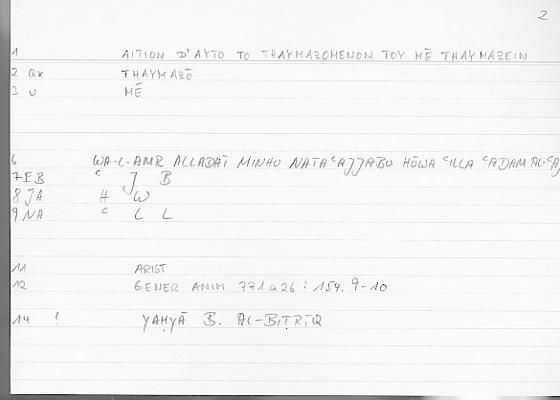 2
1 AITION D'AYTO TO THAYMAZOMENON TOY MĒ THAYMAZEIN
2 Qx THAYMAZŌ
3 U MĒ
6 WA-L-AMR ALLADAĪ MINHU NATAʿAJJABU HŌWA ʿILLA ʿADAM AL-ʿAJ
7 EB ʿ J B
8 JA H W
9 NA ʿ L L
11 ARIST
12 GENER ANIM 771a26 : 154.9-10
14 ! YAḤYĀ B. AL-BIṬRĪQ